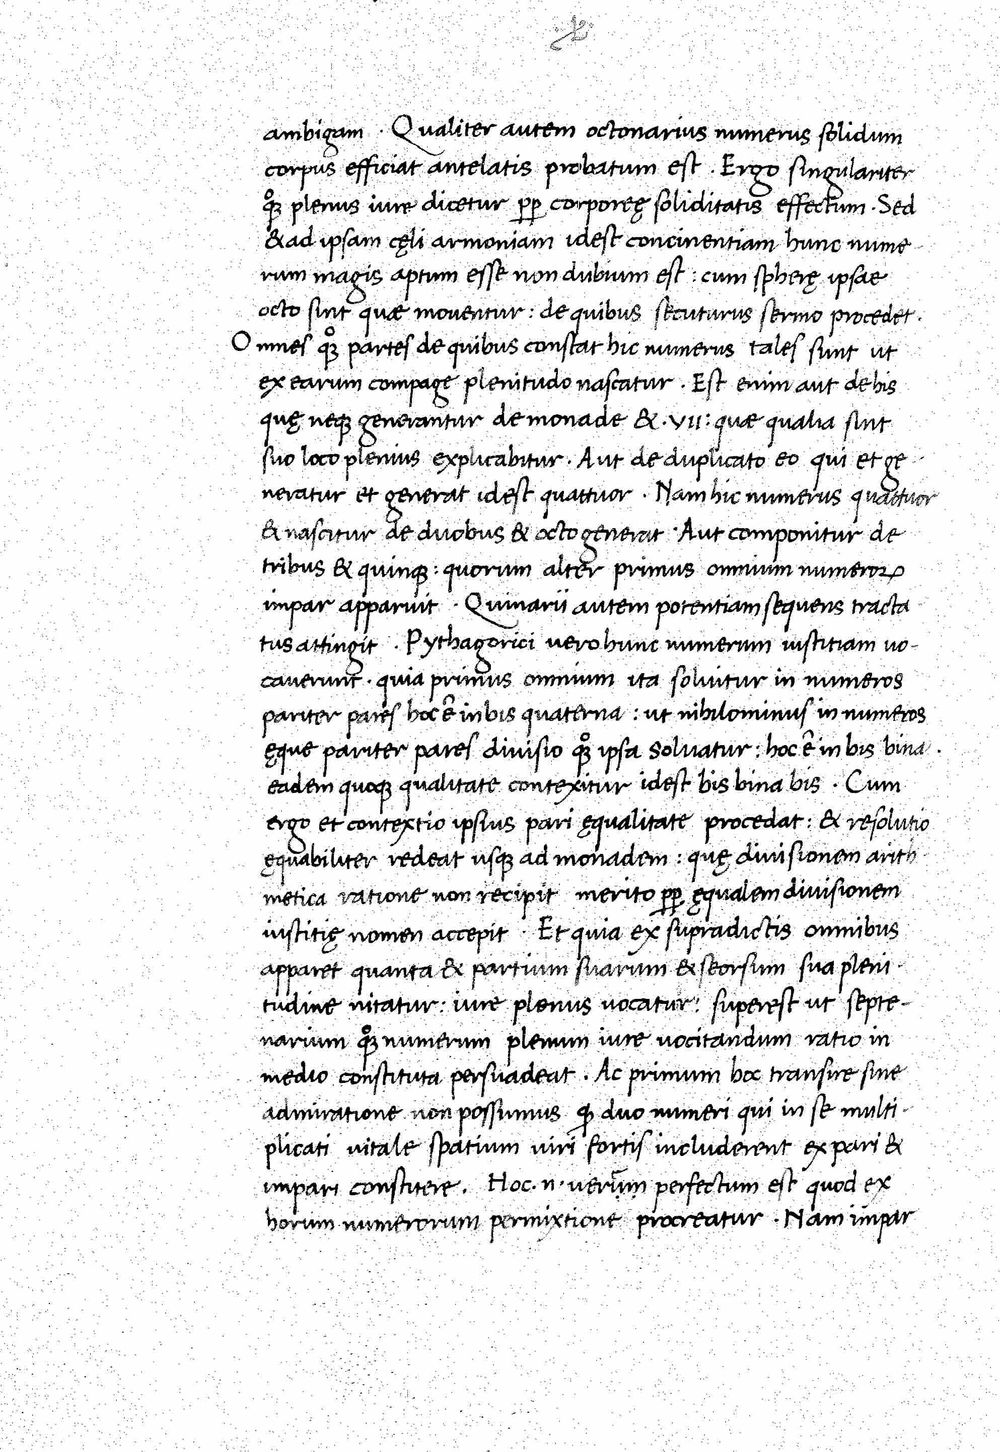 ambigam · Qualiter autem octonarius numerus solidum
corpus efficiat antelatis probatum est · Ergo singulariter
qꝫ plenus iure dicetur ꝓꝑ corporeę soliditatis effectum · Sed
& ad ipsam cęli armoniam idest concinentiam hunc nume-
rum magis aptum esse non dubium est : cum spherę ipsae
octo sint quæ moventur : de quibus secuturus sermo procedet .
Omnes qꝫ partes de quibus constat hic numerus tales sunt ut
ex earum compage plenitudo nascatur . Est enim aut de his
quę neqꝫ generantur de monade & · VII : quæ qualia sint
suo loco plenius explicabitur . Aut de duplicato eo qui et ge-
neratur et generat idest quattuor . Nam hic numerus quattuor
& nascitur de duobus & octo generat · Aut componitur de
tribus & quinqꝫ : quorum alter primus omnium numeroꝝ
impar apparuit · Quinarii autem potentiam sequens tracta-
tus attingit . Pythagorici vero hunc numerum iustitiam uo-
cauerunt · quia primus omnium ita soluitur in numeros
pariter pares hoc ē in bis quaterna : ut nihilominus in numeros
ęque pariter pares diuisio qꝫ ipsa soluatur : hoc ē in bis bina .
eadem quoqꝫ qualitate contexitur idest bis bina bis . Cum
ergo et contextio ipsius pari ęqualitate procedat : & resolutio
ęquabiliter redeat usqꝫ ad monadem : quę diuisionem arith-
metica ratione non recipit merito ꝓꝑ ęqualem diuisionem
iustitię nomen accepit · Et quia ex supradictis omnibus
apparet quanta & partium suarum & seorsum sua pleni-
tudine nitatur : iure plenus uocatur : superest ut septe-
narium qꝫ numerum plenum iure uocitandum ratio in
medio constituta persuadeat . Ac primum hoc transire sine
admiratione non possumus ꝙ duo numeri qui in se multi-
plicati vitale spatium viri fortis includerent ex pari &
impari constitere . Hoc · n · uerum perfectum est quod ex
horum numerorum permixtione procreatur . Nam impar